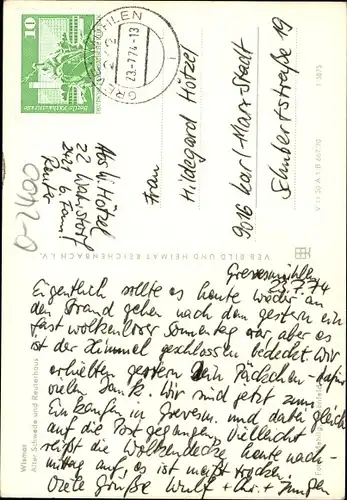 10
GREVESMÜHLEN
23.-7.74-13
Abs. U. Hötzel
22 Wahrstorf
2421 b. Fam.
Reuter
0-2400
Frau
Hildegard Hötzel
9016 Karl-Marx-Stadt
Schubertstraße 19
VEB BILD UND HEIMAT REICHENBACH I. V.
V 11 50 A 1 B 667/70
Wismar
Alter Schwede und Reuterhaus
Grevesmühlen
23.7.74
Eigentlich sollte es heute wieder an
den Strand gehen nach dem gestern ein
fast wolkenloser Sonnentag war, aber es
ist der Himmel geschlossen bedeckt. Wir
erhielten gestern Dein Päckchen - dafür
vielen Dank. Wir sind jetzt zum
Einkaufen in Grevesm. und dabei gleich
auf die Post gegangen. Vielleicht
reißt die Wolkendecke heute nach-
mittag auf, es ist meist trocken.
Viele Grüße Wulf + Chr. + Jungen